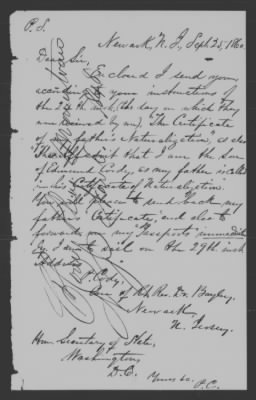 P.S.
Newark, N. J., Sept. 25, 1860.
Dear Sir,
Enclosed I send you,
according to your instructions of
the 24th inst. (the day on which they
were received by me) "The Certificate
of my father's Naturalization", as also
"The Affidavit that I am the son
of Edmund Cody, as my father is called
in his Certificate of Naturalization.
You will please to send back my
father's Certificate, and also to
forward on my Passports immediately
as I am to sail on the 29th inst.
Address
P. Cody,
Care of Rt. Rev. Dr. Bayley,
Newark,
N. Jersey.
Hon. Secretary of State,
Washington,
D.C.
Yours &c.
P.C.